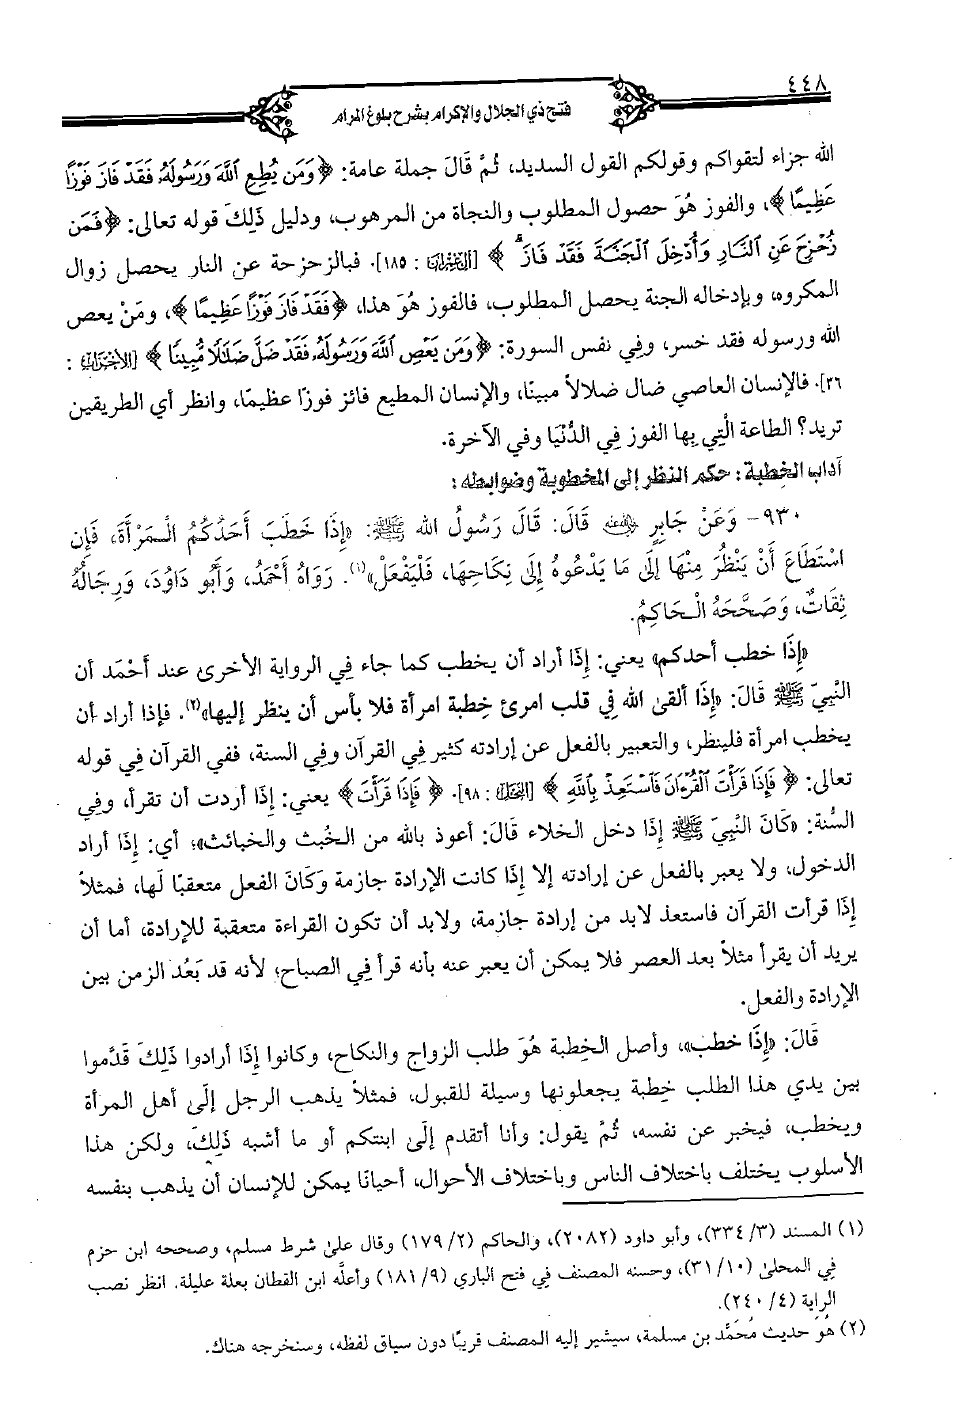 ٤٤٨
فتح ذي الجلال والإكرام بشرح بلوغ المرام
الله جزاء لتقواكم وقولكم القول السديد، ثُمَّ قَالَ جملة عامة: ﴿وَمَن يُطِعِ ٱللَّهَ وَرَسُولَهُۥ فَقَدْ فَازَ فَوْزًا
عَظِيمًا﴾، والفوز هُوَ حصول المطلوب والنجاة من المرهوب، ودليل ذَلِكَ قوله تعالى: ﴿فَمَن
زُحْزِحَ عَنِ ٱلنَّارِ وَأُدْخِلَ ٱلْجَنَّةَ فَقَدْ فَازَ﴾ [آل عمران: ١٨٥]. فبالزحزحة عن النار يحصل زوال
المكروه، وبإدخاله الجنة يحصل المطلوب، فالفوز هُوَ هذا، ﴿فَقَدْ فَازَ فَوْزًا عَظِيمًا﴾، ومَنْ يعص
الله ورسوله فقد خسر، وفِي نفس السورة: ﴿وَمَن يَعْصِ ٱللَّهَ وَرَسُولَهُۥ فَقَدْ ضَلَّ ضَلَٰلًا مُّبِينًا﴾ [الأحزاب:
٣٦]. فالإنسان العاصي ضال ضلالاً مبينًا، والإنسان المطيع فائز فوزًا عظيمًا، وانظر أي الطريقين
تريد؟ الطاعة الَّتِي بِها الفوز فِي الدُّنْيَا وفي الآخرة.
آداب الخِطبة: حكم النظر إلى المخطوبة وضوابطه:
٩٣٠- وَعَنْ جَابِرٍ رضي الله عنه قَالَ: قَالَ رَسُولُ الله ﷺ: «إِذَا خَطَبَ أَحَدُكُمُ الْـمَرْأَةَ، فَإِنِ
اسْتَطَاعَ أَنْ يَنْظُرَ مِنْهَا إِلَى مَا يَدْعُوهُ إِلَى نِكَاحِهَا، فَلْيَفْعَلْ»(١). رَوَاهُ أَحْمَدُ، وَأَبُو دَاوُدَ، وَرِجَالُهُ
ثِقَاتٌ، وَصَحَّحَهُ الْـحَاكِمُ.
«إِذَا خطب أحدكم» يعني: إِذَا أراد أن يخطب كما جاء فِي الرواية الأخرى عند أَحْمَد أن
النَّبِيّ ﷺ قَالَ: «إِذَا ألقى الله فِي قلب امرئ خِطبة امرأة فلا بأس أن ينظر إليها»(٢). فإذا أراد أن
يخطب امرأة فلينظر، والتعبير بالفعل عن إرادته كثير فِي القرآن وفِي السنة، ففي القرآن فِي قوله
تعالى: ﴿فَإِذَا قَرَأْتَ ٱلْقُرْءَانَ فَٱسْتَعِذْ بِٱللَّهِ﴾ [النحل: ٩٨]. ﴿فَإِذَا قَرَأْتَ﴾ يعني: إِذَا أردت أن تقرأ، وفِي
السُّنة: «كَانَ النَّبِيّ ﷺ إِذَا دخل الخلاء قَالَ: أعوذ بالله من الخُبث والخبائث»؛ أي: إِذَا أراد
الدخول، ولا يعبر بالفعل عن إرادته إلا إِذَا كانت الإرادة جازمة وَكَانَ الفعل متعقبًا لَها، فمثلاً
إِذَا قرأت القرآن فاستعذ لابد من إرادة جازمة، ولابد أن تكون القراءة متعقبة للإرادة، أما أن
يريد أن يقرأ مثلاً بعد العصر فلا يمكن أن يعبر عنه بأنه قرأ فِي الصباح؛ لأنه قد بَعُد الزمن بين
الإرادة والفعل.
قَالَ: «إِذَا خطب»، وأصل الخِطبة هُوَ طلب الزواج والنكاح، وكانوا إِذَا أرادوا ذَلِكَ قَدَّموا
بين يدي هذا الطلب خِطبة يجعلونها وسيلة للقبول، فمثلاً يذهب الرجل إِلَى أهل المرأة
ويخطب، فيخبر عن نفسه، ثُمَّ يقول: وأنا أتقدم إِلَى ابنتكم أو ما أشبه ذَلِكَ، ولكن هذا
الأسلوب يختلف باختلاف الناس وباختلاف الأحوال، أحيانًا يمكن للإنسان أن يذهب بنفسه
(١) المسند (٣/ ٣٣٤)، وأبو داود (٢٠٨٢)، والحاكم (٢/ ١٧٩) وقال على شرط مسلم، وصححه ابن حزم
فِي المحلى (١٠/ ٣١)، وحسنه المصنف فِي فتح الباري (٩/ ١٨١) وأعلَّه ابن القطان بعلة عليلة. انظر نصب
الراية (٤/ ٢٤٠).
(٢) هُوَ حديث مُحَمَّد بن مسلمة، سيشير إليه المصنف قريبًا دون سياق لفظه، وسنخرجه هناك.